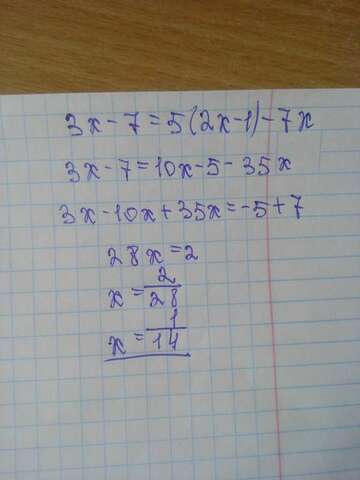 3x - 7 = 5(2x-1) - 7x
3x - 7 = 10x - 5 - 35x
3x - 10x + 35x = -5 + 7
28x = 2
x = 2/28
x = 1/14